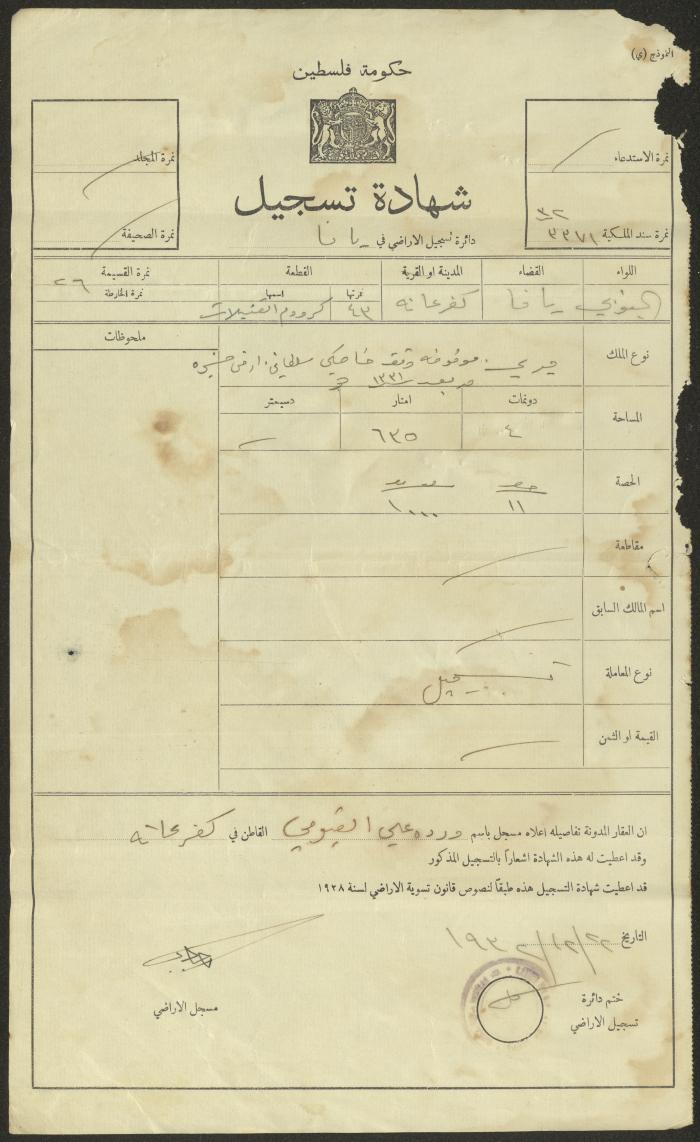 النموذج (ي)
حكومة فلسطين
نمرة الاستدعاء
نمرة المجلد
شهادة تسجيل
٣٢
نمرة سند الملكية ٣٣٧١
دائرة تسجيل الاراضي في يافا
نمرة الصحيفة
اللواء القضاء المدينة او القرية القطعة نمرة القسيمة
نمرتها اسمها نمرة الخارطة
٢٦
الجنوبي يافا كفرعانه ٤٣ كروم
ملحوظات
نوع الملك ميري موقوفه وقف خاصكي سلطان
١٣٣١
المساحة دونمات امتار دسيمتر
٤ ٦٣٥
الحصة
١١ ١٠٠٠
مقاطعة
اسم المالك السابق
نوع المعاملة تسجيل
القيمة او الثمن
ان العقار المدونة تفاصيله اعلاه مسجل باسم ورده علي الفيومي القاطن في كفرعانه
وقد اعطيت له هذه الشهادة اشعاراً بالتسجيل المذكور
قد اعطيت شهادة التسجيل هذه طبقاً لنصوص قانون تسوية الاراضي لسنة ١٩٢٨
التاريخ
ختم دائرة
تسجيل الاراضي
مسجل الاراضي